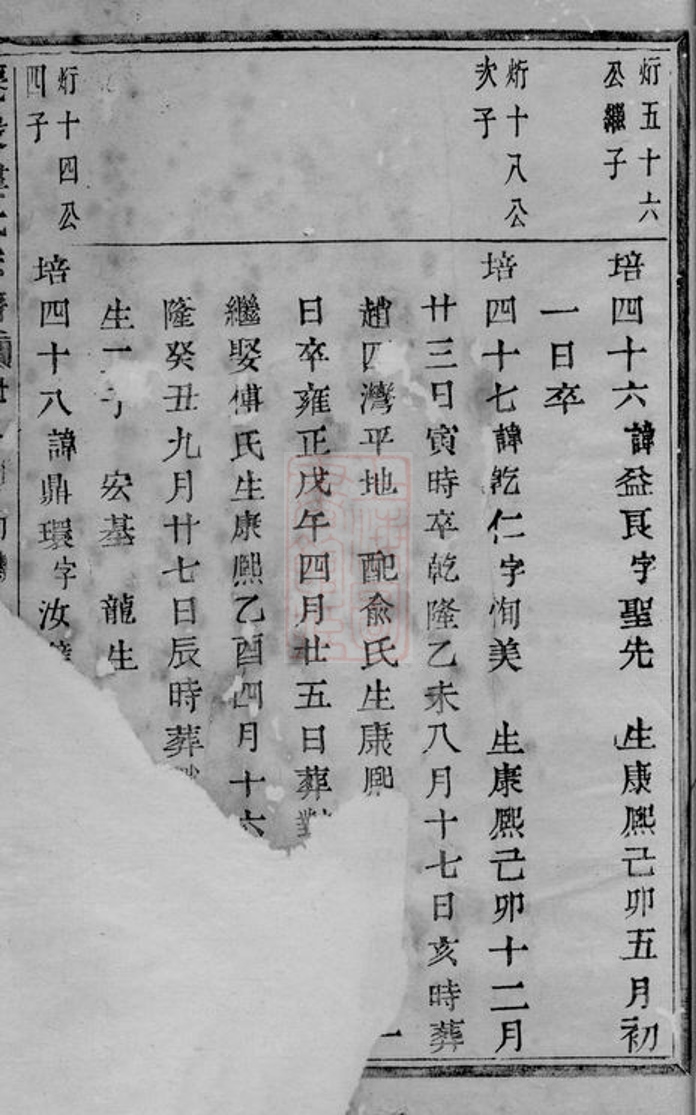 炘五十六
公繼子
培四十六諱益良字聖先 生康熙己卯五月初
一日卒
炘十八公
次子
培四十七諱乾仁字洵美 生康熙己卯十二月
廿三日寅時卒乾隆乙未八月十七日亥時葬
趙四灣平地 配俞氏生康熙
日卒雍正戊午四月廿五日葬對
繼娶傅氏生康熙乙酉四月十六
隆癸丑九月廿七日辰時葬
生二子 宏基 龍生
炘十四公
四子
培四十八諱鼎環字汝